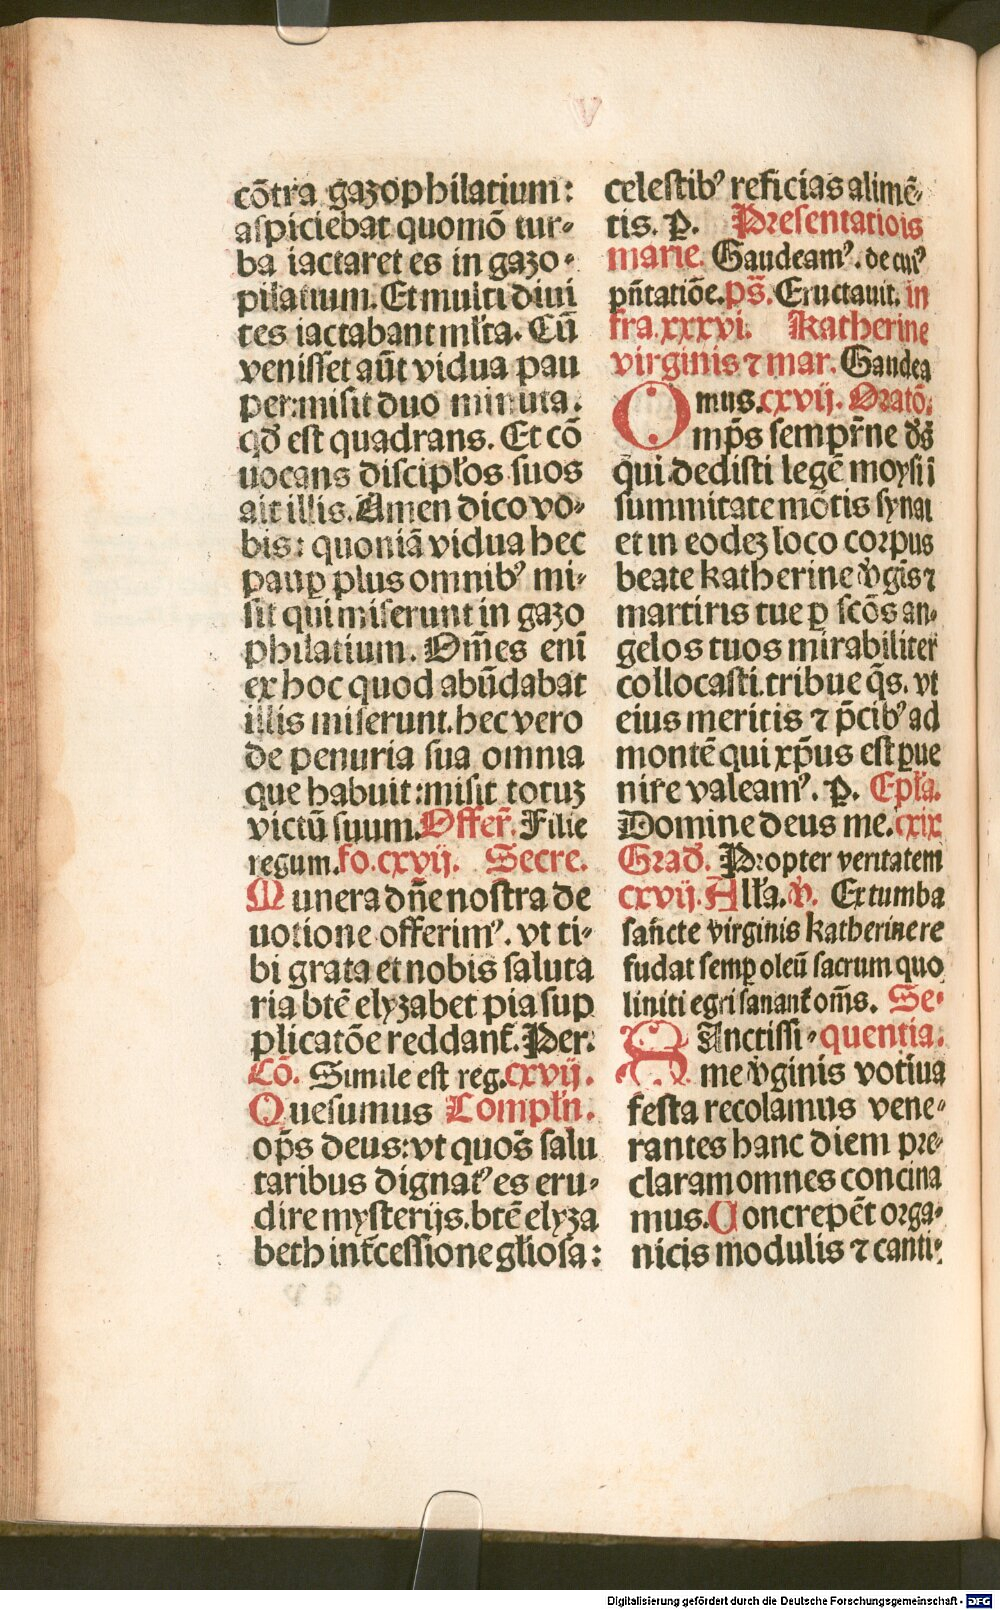 V
cōtra gazophilatium:
aspiciebat quomō tur-
ba iactaret es in gazo-
pilatium. Et multi diui
tes iactabant ml̄ta. Cū
venisset aūt vidua pau
per: misit duo minuta.
qd̄ est quadrans. Et cō
uocans discipl̄os suos
ait illis. Amen dico vo-
bis: quoniā vidua hec
paup̲ plus omnibꝰ mi-
sit qui miserunt in gazo
philatium. Om̄es enī
ex hoc quod abūdabat
illis miserunt. hec vero
de penuria sua omnia
que habuit: misit totuz
victū suum. Offer̄. Filie
regum. fo. cxvij. Secre.
Munera dn̄e nostra de
uotione offerimꝰ. vt ti-
bi grata et nobis saluta
ria btē elyzabet pia sup
plicatōe reddant̄. Per.
Cō. Simile est reg. cxvij.
Quesumus Compl̄n.
op̄s deus: vt quos̄ salu
taribus dignatꝰ es eru-
dire mysterijs. btē elyza
beth int̄cessione gl̄iosa:
celestibꝰ reficias alimē-
tis. P̲. Presentatiōis
marie. Gaudeamꝰ. de cuiꝰ
pn̄tatiōe. ps̄. Eructauit. in
fra. xxxvi. Katherine
virginis ⁊ mar. Gaudea
mus. cxvij. Oratō.
Omp̄s semp̄rne ds̄
qui dedisti legē moysi i
summitate mōtis synai
et in eodez loco corpus
beate katherine v̄gis̄ ⁊
martiris tue p̲ scōs an-
gelos tuos mirabiliter
collocasti. tribue q̄s. vt
eius meritis ⁊ p̄cibꝰ ad
montē qui xp̄us est p̲ue
nire valeamꝰ. P̲. Epl̄a.
Domine deus me. cxix
Grad̄. Propter veritatem
cxvij. All̄a. v̄. Ex tumba
san̄cte virginis katherine re
fudat semp̲ oleū sacrum quo
liniti egri sanant̄ om̄s. Se-
Sanctissi- quentia.
me v̄ginis votiua
festa recolamus vene-
rantes hanc diem pre-
claram omnes concina
mus. Concrepēt orga-
nicis modulis ⁊ canti-
Digitalisierung gefördert durch die Deutsche Forschungsgemeinschaft - DFG